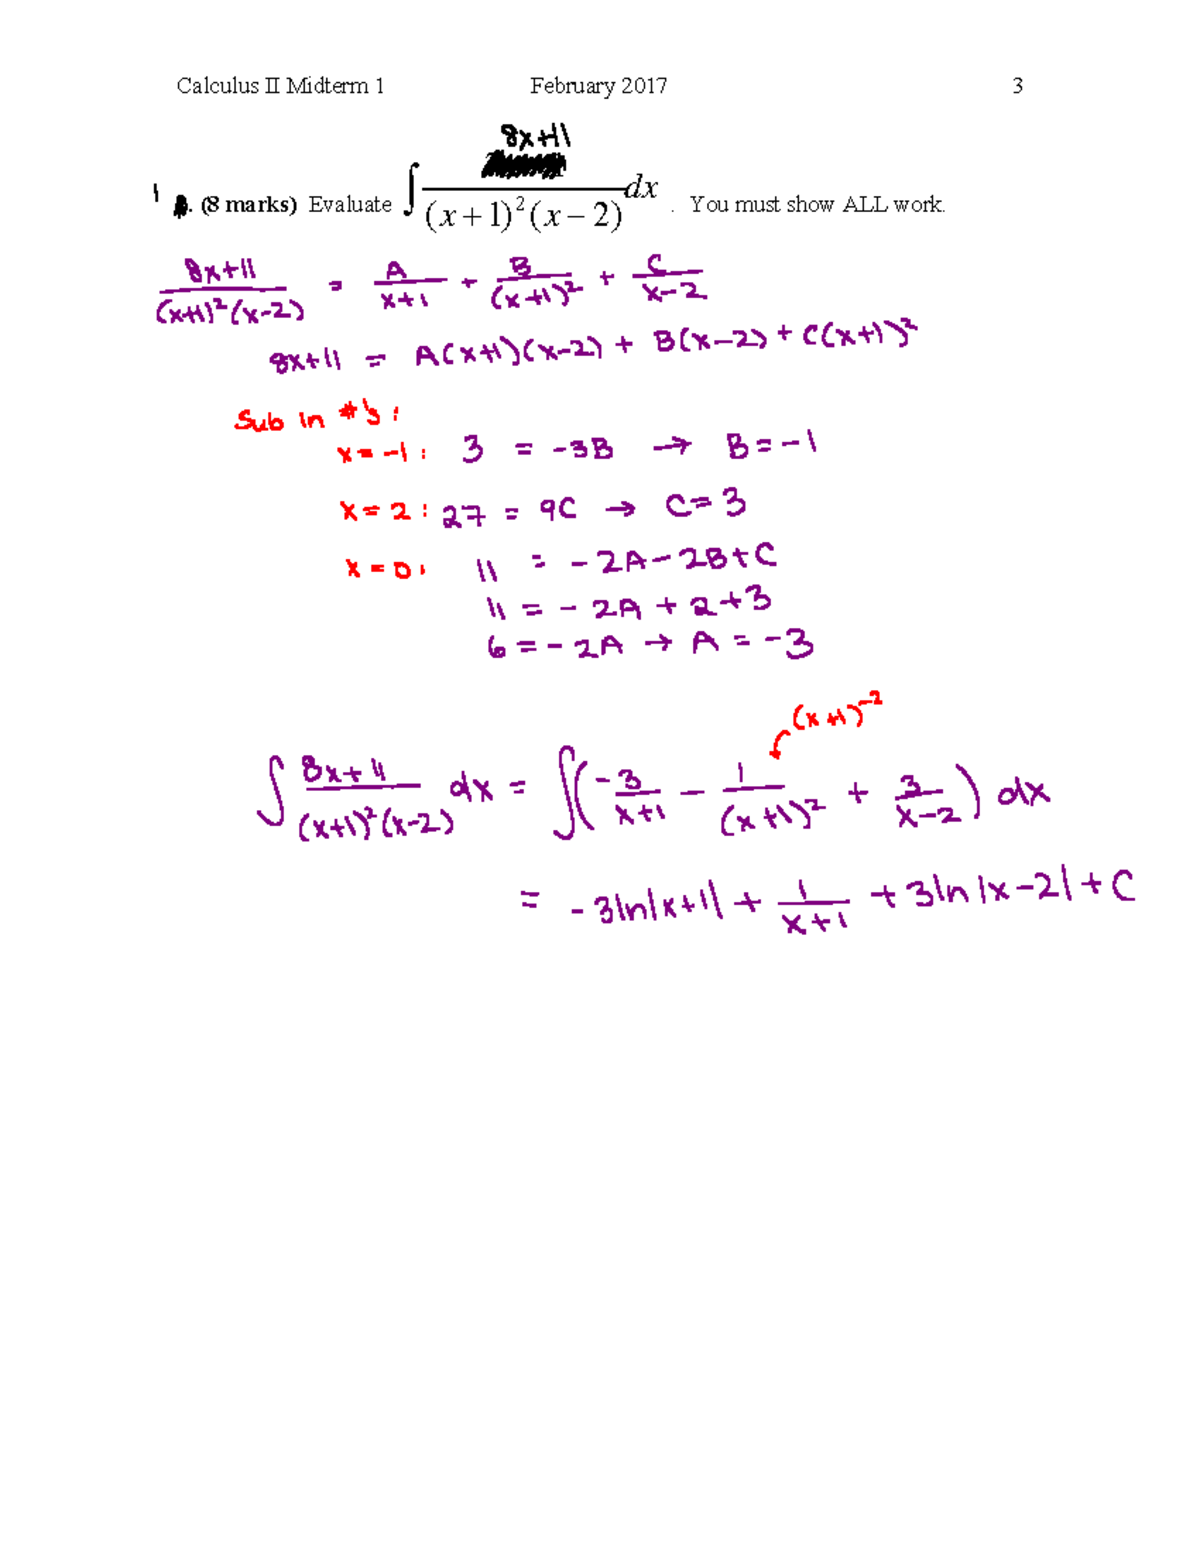 Calculus II Midterm 1 February 2017 3
8x+11
1 . (8 marks) Evaluate ∫ ———dx / (x+1)²(x−2) . You must show ALL work.
8x+11 / (x+1)²(x-2) = A / x+1 + B / (x+1)² + C / x-2
8x+11 = A(x+1)(x-2) + B(x-2) + C(x+1)²
Sub in #'s:
x=-1: 3 = -3B → B=-1
x=2: 27 = 9C → C=3
x=0: 11 = -2A-2B+C
11 = -2A+2+3
6=-2A → A=-3
(x+1)⁻²
∫ 8x+11 / (x+1)²(x-2) dx = ∫( -3 / x+1 - 1 / (x+1)² + 3 / x-2 ) dx
= -3ln|x+1| + 1 / x+1 + 3ln|x-2| + C